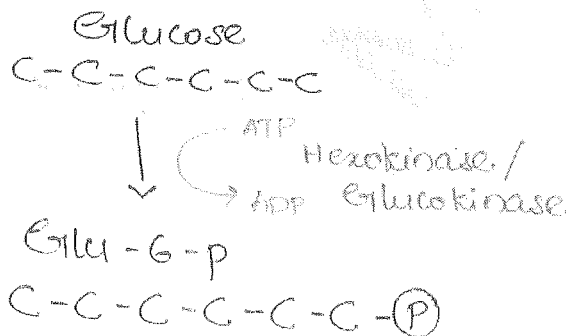 Glucose
C-C-C-C-C-C
ATP
Hexokinase/
ADP Glucokinase
Glu-6-P
C-C-C-C-C-C-P